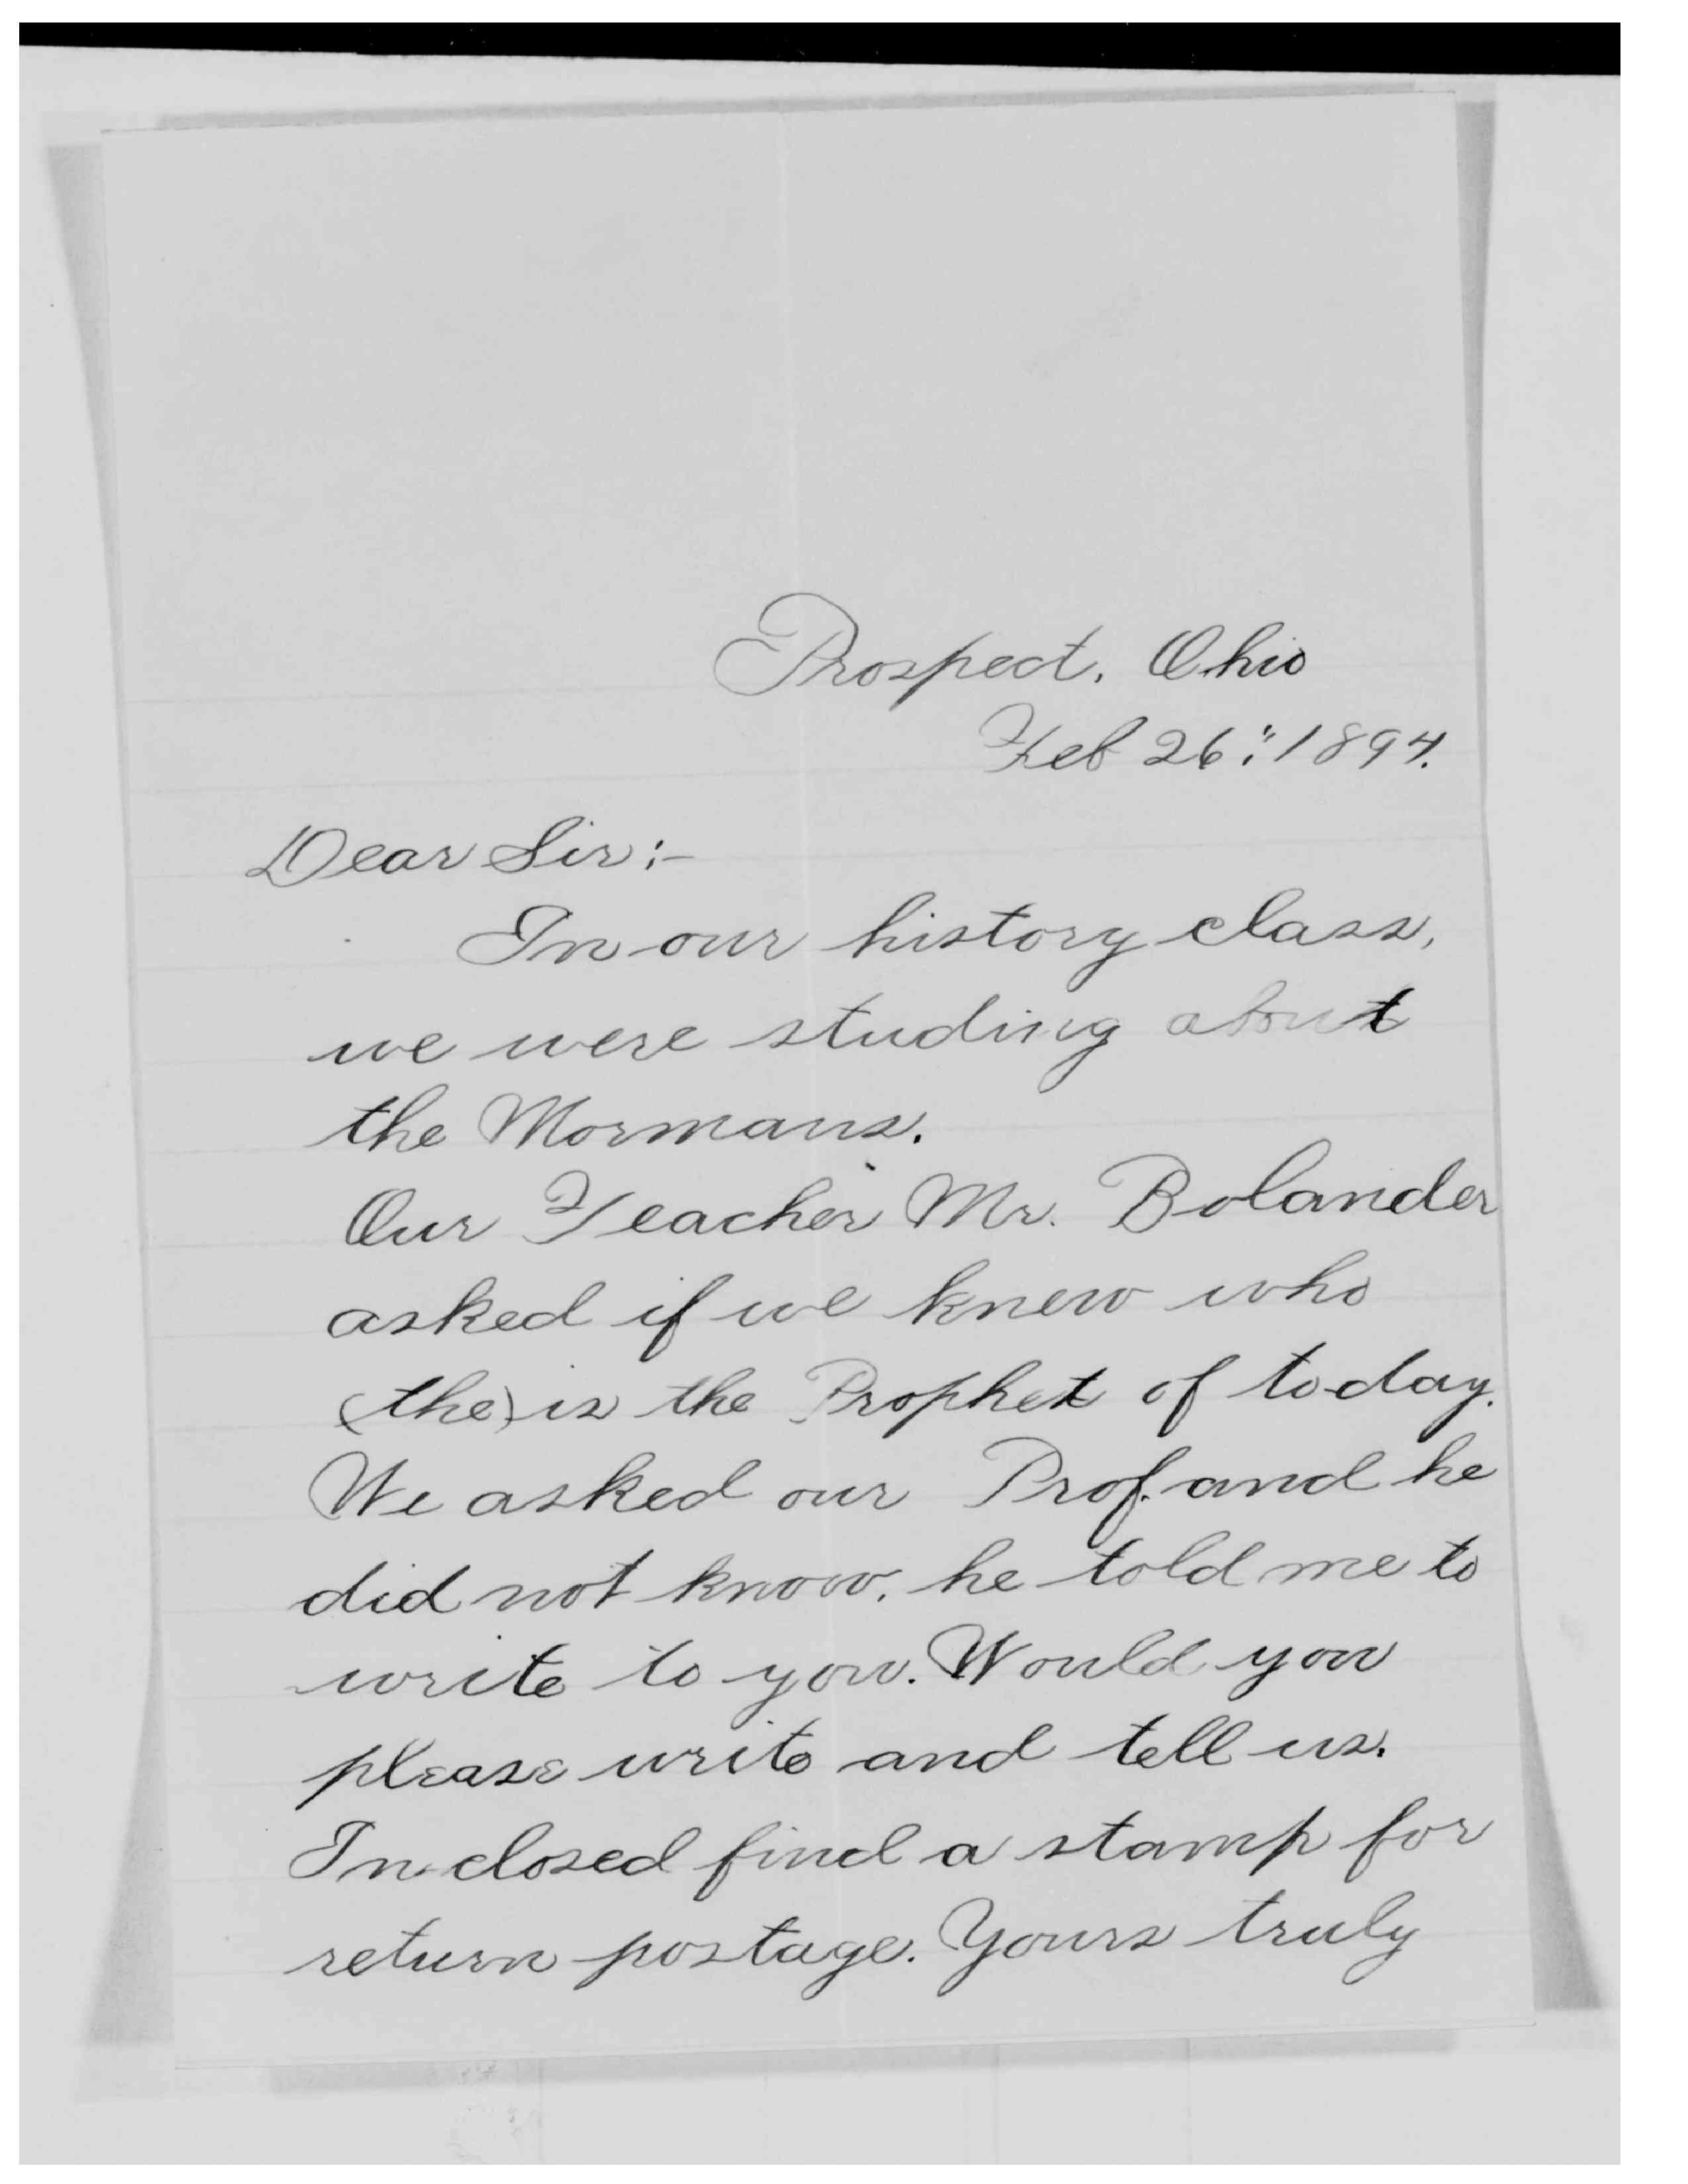 Prospect, Ohio
Feb 26." 1894.
Dear Sir:-
In our history class,
we were studing about
the Mormans.
Our Teacher Mr. Bolander
asked if we knew who
(the) is the Prophet of to-day.
We asked our Prof. and he
did not know, he told me to
write to you. Would you
please write and tell us.
Inclosed find a stamp for
return postage. Yours truly